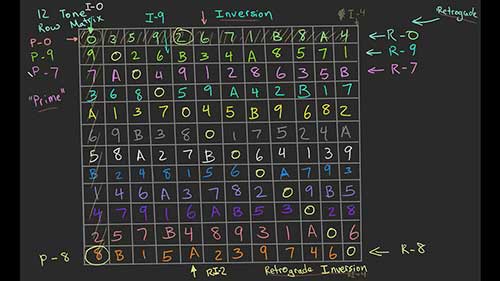 I-0
12 Tone I-9 Inversion I-4 Retrograde
Row Matrix
P-0 0 3 5 9 2 6 7 1 B 8 A 4 R-0
P-9 9 0 2 6 B 3 4 A 8 5 7 1 R-9
P-7 7 A 0 4 9 1 2 8 6 3 5 B R-7
3 6 8 0 5 9 A 4 2 B 1 7
"Prime"
A 1 3 7 0 4 5 B 9 6 8 2
6 9 B 3 8 0 1 7 5 2 4 A
5 8 A 2 7 B 0 6 4 1 3 9
B 2 4 8 1 5 6 0 A 7 9 3
1 4 6 A 3 7 8 2 0 9 B 5
4 7 9 1 6 A B 5 3 0 2 8
2 5 7 B 4 8 9 3 1 A 0 6
P-8 8 B 1 5 A 2 3 9 7 4 6 0 R-8
RI-2 Retrograde Inversion